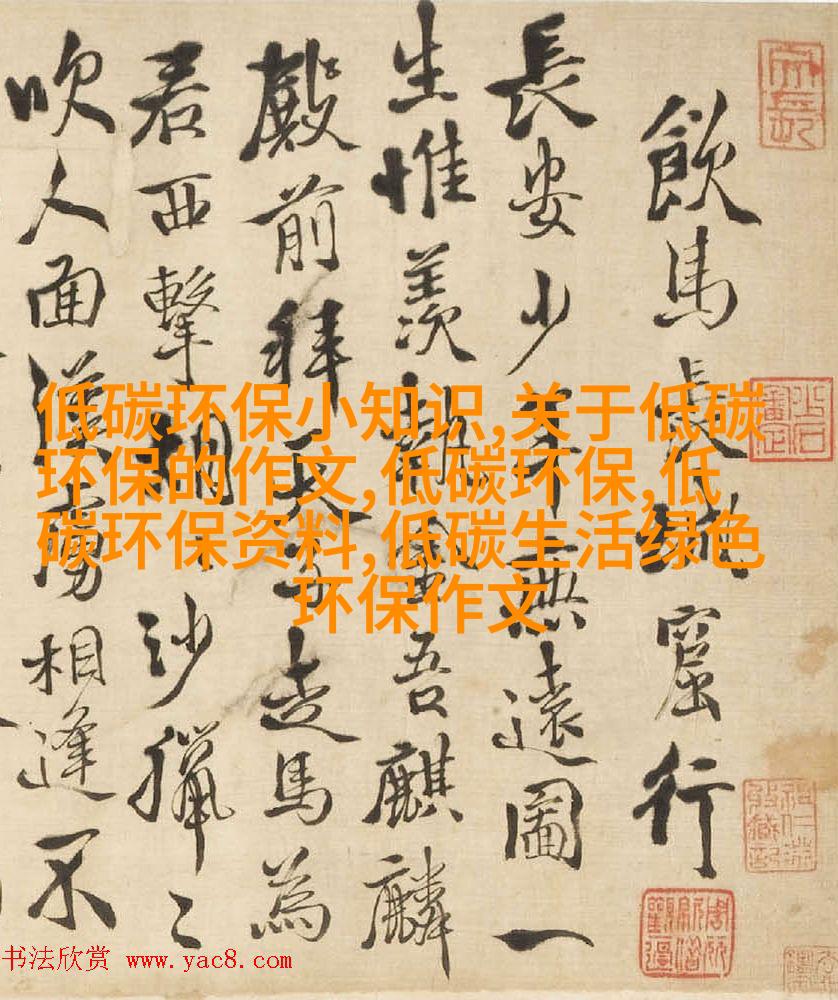 飲馬長城窟行
長安少年無遠圖一
生惟羨執金吾麒麟
殿前拜天子走馬為
君西擊胡〻沙獵〻
吹人面漢虜相逢不
低碳环保小知识,关于低碳
环保的作文,低碳环保,低
碳环保资料,低碳生活绿色
环保作文
书法欣赏 www.yac8.com